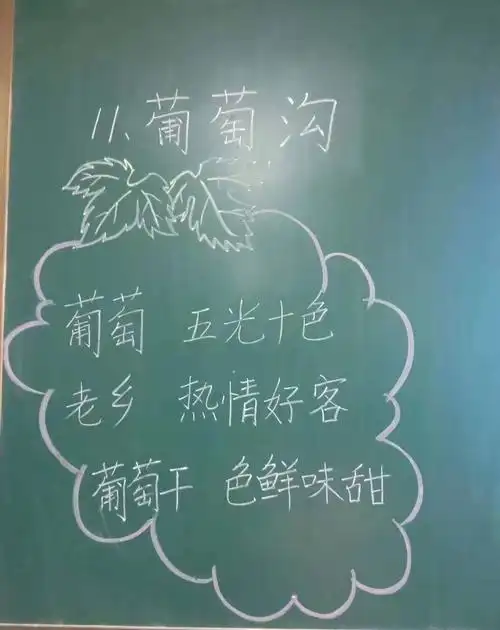 11、葡萄沟
葡萄 五光十色
老乡 热情好客
葡萄干 色鲜味甜